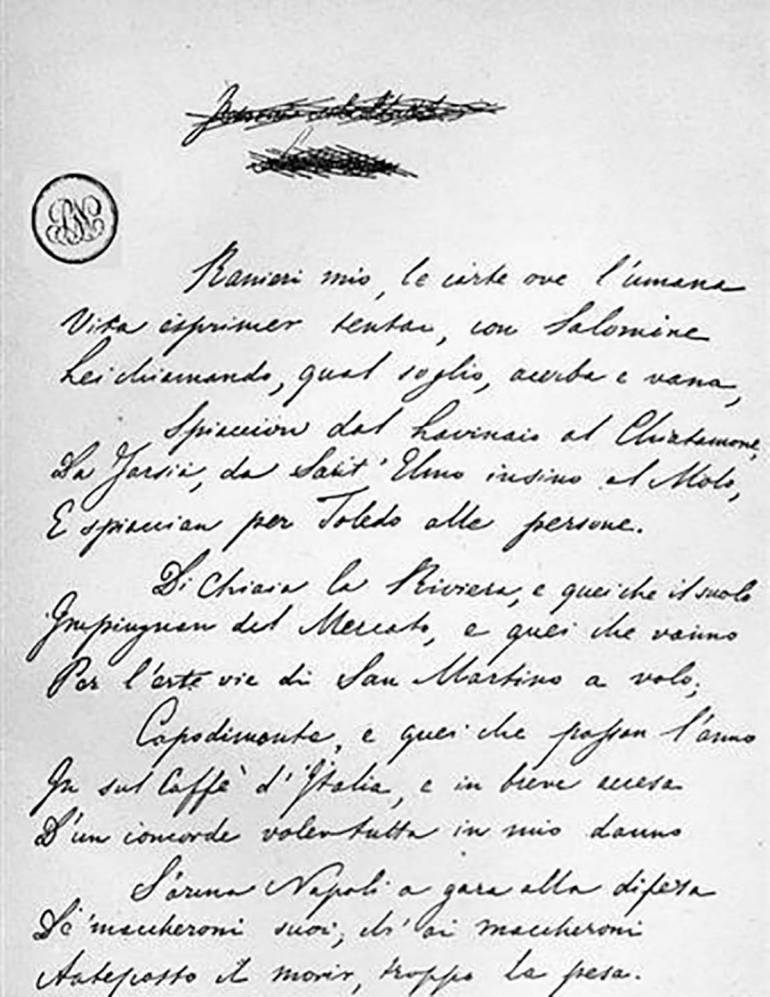 Ranieri mio, le carte ove l'umana
Vita esprimer tentai, con Salomone
Lei chiamando, qual soglio, acerba e vana,
Spiaccion dal Lavinaio al Chiatamone,
Da Tarsia, da Sant' Elmo insino al Molo,
E spiaccian per Toledo alle persone.
Di Chiaia la Riviera, e quei che il suolo
Impinguan del Mercato, e quei che vanno
Per l'erte vie di San Martino a volo;
Capodimonte, e quei che passan l'anno
In sul Caffè d'Italia, e in breve accesa
D'un concorde voler tutta in mio danno
S'arma Napoli a gara alla difesa
De' maccheroni suoi; ch' ai maccheroni
Anteposto il morir, troppo le pesa.